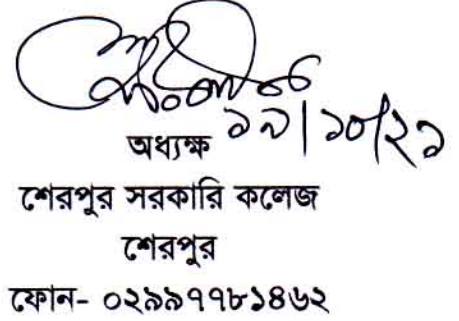 ১৯/১০/২১
অধ্যক্ষ
শেরপুর সরকারি কলেজ
শেরপুর
ফোন- ০২৯৯৭৭৮১৪৬২